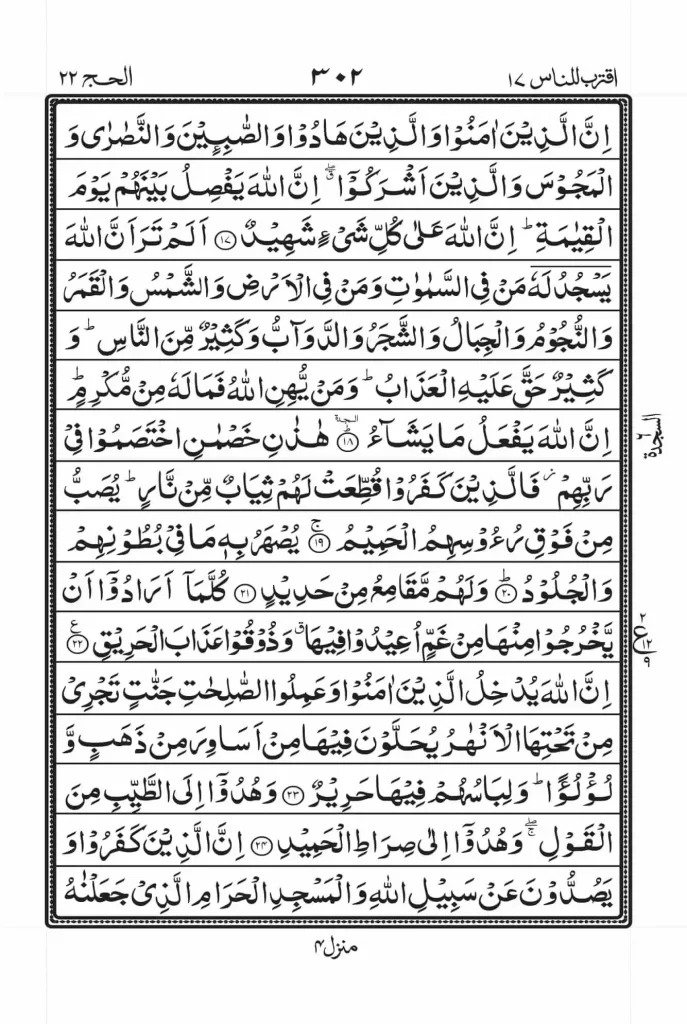 اقترب للناس ١٧
٣٠٢
الحج ٢٢
اِنَّ الَّذِيۡنَ اٰمَنُوۡا وَالَّذِيۡنَ هَادُوۡا وَالصّٰبِــِٕيۡنَ وَالنَّصٰرٰى وَ
الۡمَجُوۡسَ وَالَّذِيۡنَ اَشۡرَكُوۡۤا ‌ۖ اِنَّ اللّٰهَ يَفۡصِلُ بَيۡنَهُمۡ يَوۡمَ
الۡقِيٰمَةِ‌ ؕ اِنَّ اللّٰهَ عَلٰى كُلِّ شَىۡءٍ شَهِيۡدٌ ﴿۱۷﴾ اَلَمۡ تَرَ اَنَّ اللّٰهَ
يَسۡجُدُ لَهٗ مَنۡ فِى السَّمٰوٰتِ وَمَنۡ فِى الۡاَرۡضِ وَالشَّمۡسُ وَالۡقَمَرُ
وَالنُّجُوۡمُ وَالۡجِبَالُ وَالشَّجَرُ وَالدَّوَآبُّ وَكَثِيۡرٌ مِّنَ النَّاسِ‌ ؕ وَ
كَثِيۡرٌ حَقَّ عَلَيۡهِ الۡعَذَابُ‌ ؕ وَمَنۡ يُّهِنِ اللّٰهُ فَمَا لَهٗ مِنۡ مُّكۡرِمٍ‌ؕ
اِنَّ اللّٰهَ يَفۡعَلُ مَا يَشَآءُ ؕ ﴿۱۸﴾ هٰذٰنِ خَصۡمٰنِ اخۡتَصَمُوۡا فِىۡ
رَبِّهِمۡ‌ فَالَّذِيۡنَ كَفَرُوۡا قُطِّعَتۡ لَهُمۡ ثِيَابٌ مِّنۡ نَّارٍ ؕ يُصَبُّ
مِنۡ فَوۡقِ رُءُوۡسِهِمُ الۡحَمِيۡمُ‌ۚ ﴿۱۹﴾ يُصۡهَرُ بِهٖ مَا فِىۡ بُطُوۡنِهِمۡ
وَالۡجُلُوۡدُؕ ﴿۲۰﴾ وَلَهُمۡ مَّقَامِعُ مِنۡ حَدِيۡدٍ ﴿۲۱﴾ كُلَّمَاۤ اَرَادُوۡۤا اَنۡ
يَّخۡرُجُوۡا مِنۡهَا مِنۡ غَمٍّ اُعِيۡدُوۡا فِيۡهَا وَذُوۡقُوۡا عَذَابَ الۡحَرِيۡقِ ﴿۲۲﴾
اِنَّ اللّٰهَ يُدۡخِلُ الَّذِيۡنَ اٰمَنُوۡا وَعَمِلُوا الصّٰلِحٰتِ جَنّٰتٍ تَجۡرِىۡ
مِنۡ تَحۡتِهَا الۡاَنۡهٰرُ يُحَلَّوۡنَ فِيۡهَا مِنۡ اَسَاوِرَ مِنۡ ذَهَبٍ وَّ
لُـؤۡلُـؤًا‌ ؕ وَلِبَاسُهُمۡ فِيۡهَا حَرِيۡرٌ ﴿۲۳﴾ وَهُدُوۡۤا اِلَى الطَّيِّبِ مِنَ
الۡقَوۡلِ ۖۚ وَهُدُوۡۤا اِلٰى صِرَاطِ الۡحَمِيۡدِ ﴿۲۴﴾ اِنَّ الَّذِيۡنَ كَفَرُوۡا وَ
يَصُدُّوۡنَ عَنۡ سَبِيۡلِ اللّٰهِ وَالۡمَسۡجِدِ الۡحَـرَامِ الَّذِىۡ جَعَلۡنٰهُ
السجدة ٦
ع ٢ ١٢ ٩
منزل ۴